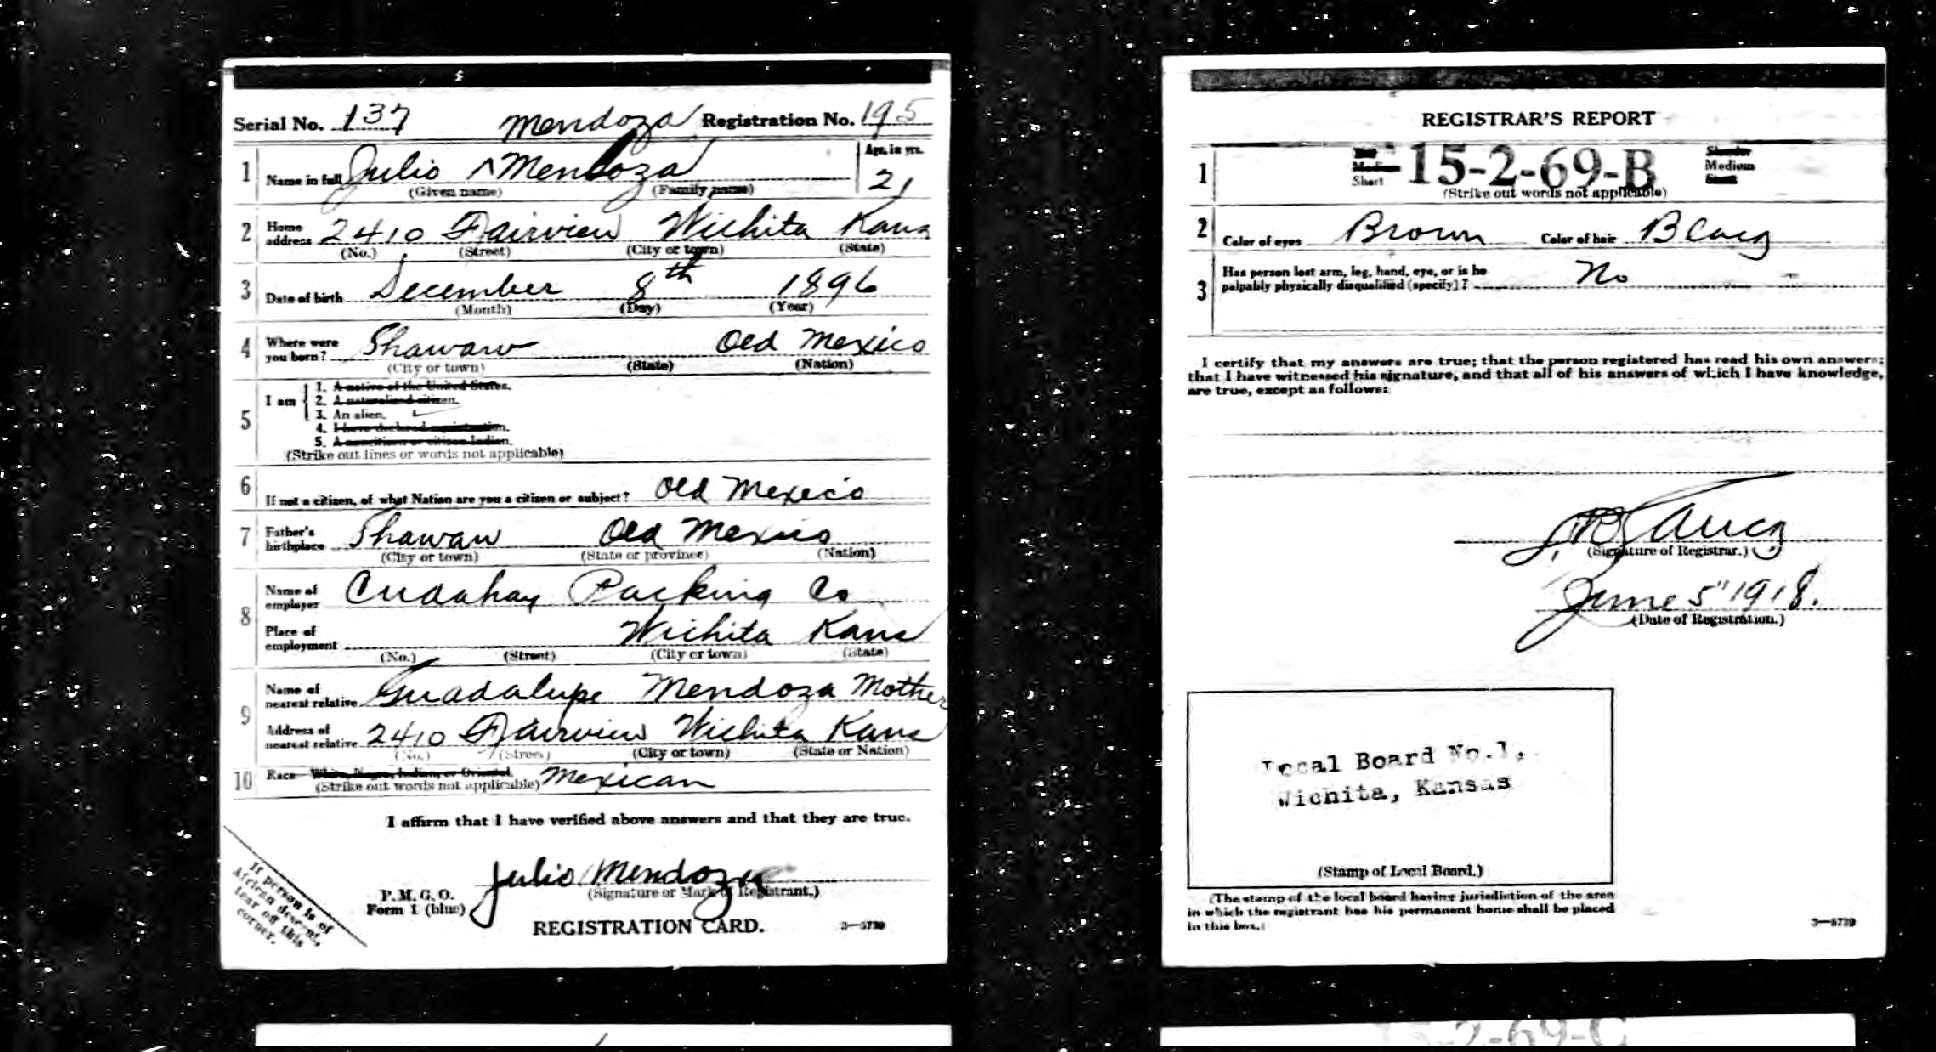 Serial No. 137 Mendoza Registration No. 195
1 Name in full Julio Mendoza Age, in yrs. 21
(Given name) (Family name)
2 Home address 2410 Fairview Wichita Kans
(No.) (Street) (City or town) (State)
3 Date of birth December 8th 1896
(Month) (Day) (Year)
4 Where were you born? Shawaw Old Mexico
(City or town) (State) (Nation)
5 I am
1. A native of the United States.
2. A naturalized citizen.
3. An alien.
4. I have declared my intention.
5. A noncitizen or citizen Indian.
(Strike out lines or words not applicable)
6 If not a citizen, of what Nation are you a citizen or subject? Old Mexico
7 Father's birthplace Shawaw Old Mexico
(City or town) (State or province) (Nation)
8 Name of employer Cudahay Packing Co
Place of employment Wichita Kans
(No.) (Street) (City or town) (State)
9 Name of nearest relative Guadalupe Mendoza Mother
Address of nearest relative 2410 Fairview Wichita Kans
(No.) (Street) (City or town) (State or Nation)
10 Race—White, Negro, Indian, or Oriental. Mexican
(Strike out words not applicable)
I affirm that I have verified above answers and that they are true.
Julio Mendoza
(Signature or Mark of Registrant.)
P. M. G. O.
Form 1 (blue)
REGISTRATION CARD. 3—5739
If person is
African descent,
tear off this
corner.
REGISTRAR'S REPORT
1 Short 15-2-69-B Slender Medium
(Strike out words not applicable)
2 Color of eyes Brown Color of hair Black
3 Has person lost arm, leg, hand, eye, or is he
palpably physically disqualified (specify)? No
I certify that my answers are true; that the person registered has read his own answers;
that I have witnessed his signature, and that all of his answers of which I have knowledge,
are true, except as follows:
(Signature of Registrar.)
June 5" 1918.
(Date of Registration.)
Local Board No. 1,
Wichita, Kansas
(Stamp of Local Board.)
(The stamp of the local board having jurisdiction of the area
in which the registrant has his permanent home shall be placed
in this box.)
3—5739
15-2-69-C